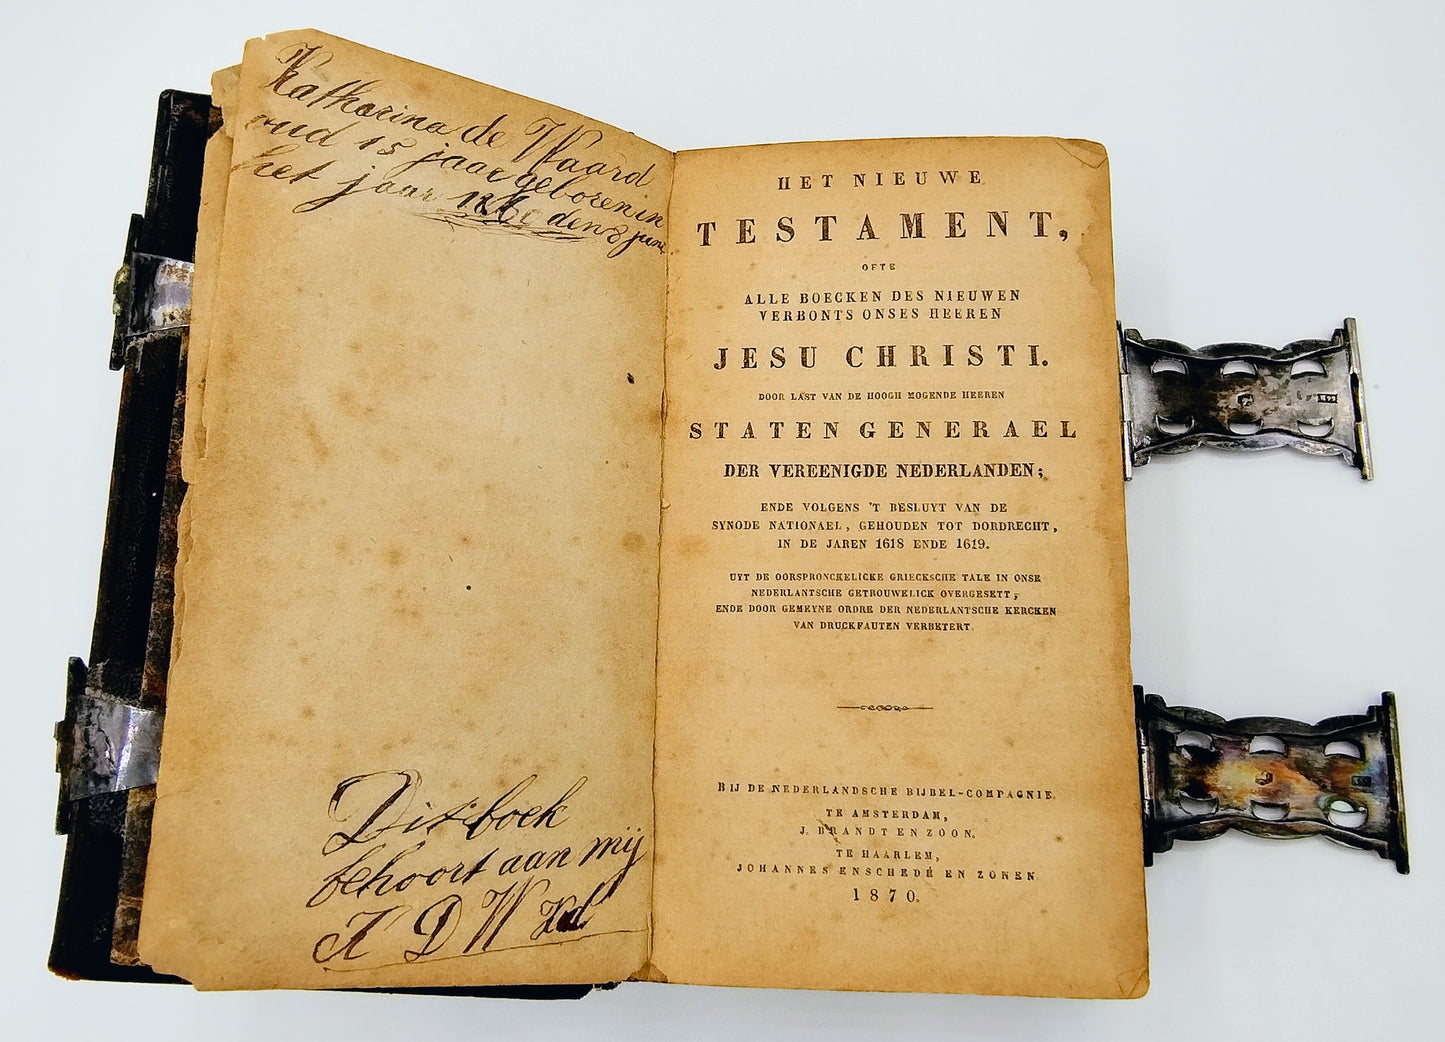 Katharina de Waard
oud 15 jaar geboren in
het jaar 1860 den 8 june
Dit boek
behoort aan mij
K D W
HET NIEUWE
TESTAMENT,
OFTE
ALLE BOECKEN DES NIEUWEN
VERBONTS ONSES HEEREN
JESU CHRISTI.
DOOR LAST VAN DE HOOGH MOGENDE HEEREN
STATEN GENERAEL
DER VEREENIGDE NEDERLANDEN;
ENDE VOLGENS 'T BESLUYT VAN DE
SYNODE NATIONAEL, GEHOUDEN TOT DORDRECHT,
IN DE JAREN 1618 ENDE 1619.
UYT DE OORSPRONCKELICKE GRIECKSCHE TALE IN ONSE
NEDERLANTSCHE GETROUWELICK OVERGESETT,
ENDE DOOR GEMEYNE ORDRE DER NEDERLANTSCHE KERCKEN
VAN DRUCKFAUTEN VERBETERT.
BIJ DE NEDERLANDSCHE BIJBEL-COMPAGNIE.
TE AMSTERDAM,
J. BRANDT EN ZOON.
TE HAARLEM,
JOHANNES ENSCHEDÉ EN ZONEN.
1870.